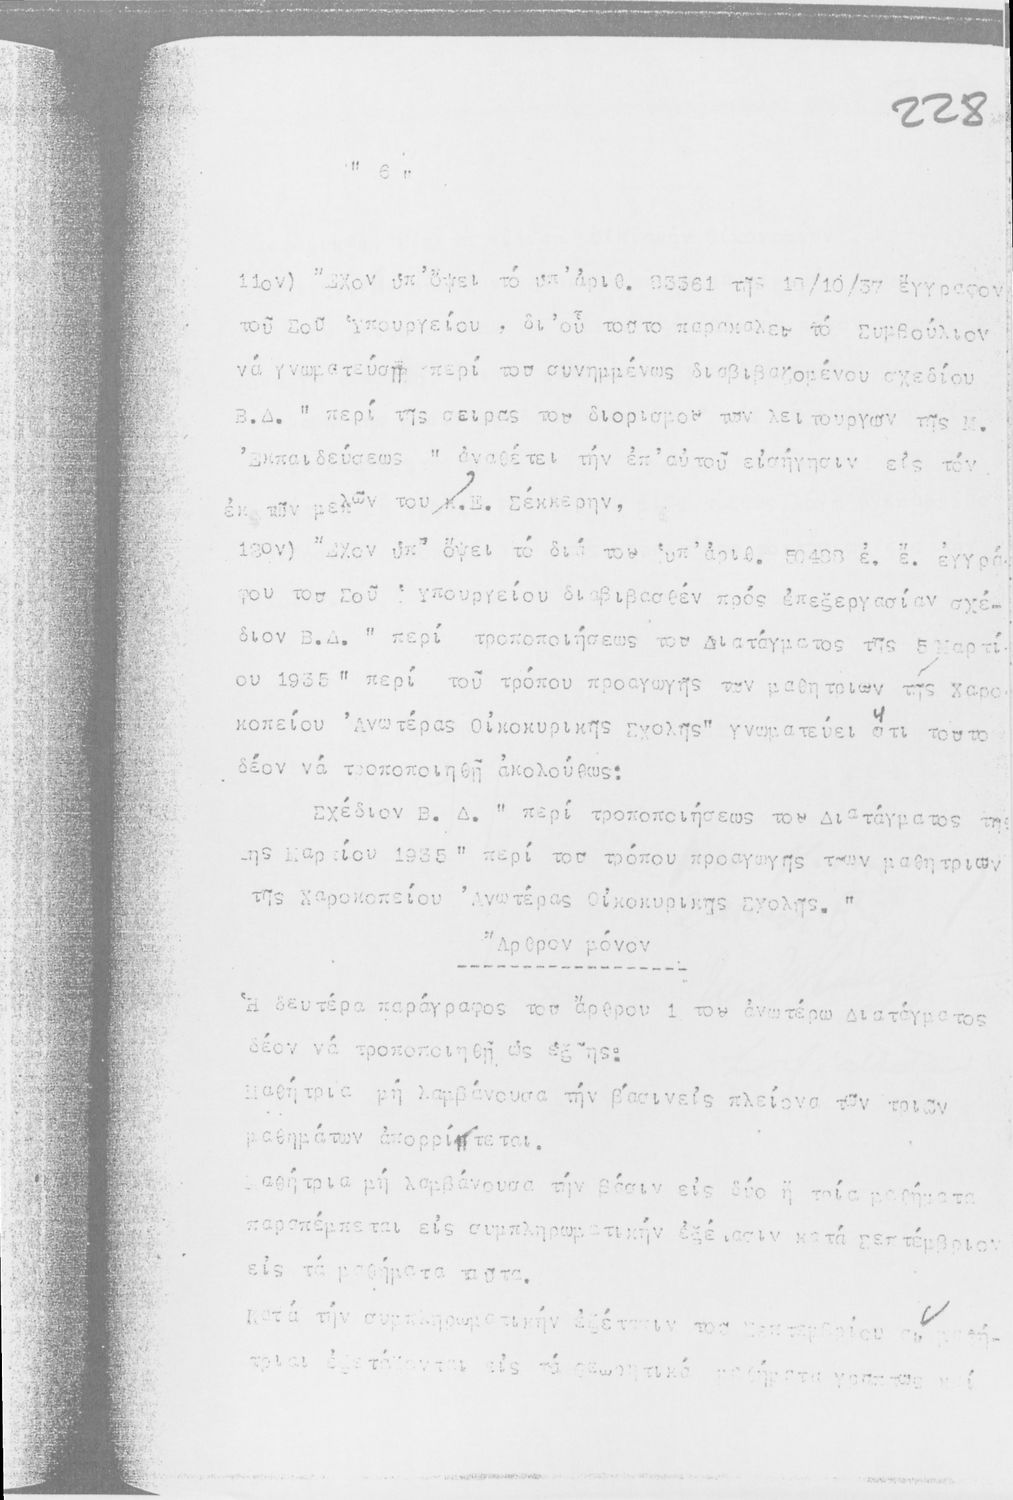 228
" 6 "
11ον) "Εχον ὑπ'ὄψει τό ὑπ'ἀριθ. 93361 τῆς 18/10/37 ἔγγραφον
τοῦ Σοῦ Ὑπουργείου , δι'οὗ τουτο παρακαλει τό Συμβούλιον
νά γνωματεύσῃ περί του συνημμένως διαβιβαζομένου σχεδίου
Β.Δ. " περί τῆς σειρας του διορισμου των λειτουργων τῆς Μ.
'Εκπαιδεύσεως " ἀναθέτει τήν ἐπ'αὐτοῦ εἰσήγησιν εἰς τόν
ἐκ τῶν μελῶν του κ.Ε. Σέκκερην,
12ον) "Εχον ὑπ' ὄψει τό διά του ὑπ'ἀριθ. 50408 ἐ. ἔ. ἐγγρά-
φου του Σοῦ Ὑπουργείου διαβιβασθέν πρός ἐπεξεργασίαν σχέ-
διον Β.Δ. " περί τροποποιήσεως του Διατάγματος τῆς 5 Μαρτί-
ου 1935 " περί τοῦ τρόπου προαγωγῆς των μαθητριων τῆς Χαρο-
κοπείου 'Ανωτέρας Οἰκοκυρικῆς Σχολῆς" γνωματεύει ὅτι τουτο
δέον νά τροποποιηθῇ ἀκολούθως:
Σχέδιον Β. Δ. " περί τροποποιήσεως του Διατάγματος της
της Μαρτίου 1935 " περί του τρόπου προαγωγῆς των μαθητριων
τῆς Χαροκοπείου 'Ανωτέρας Οἰκοκυρικης Σχολῆς. "
"Αρθρον μόνον
Ἡ δευτέρα παράγραφος του ἄρθρου 1 του ἀνωτέρω Διατάγματος
δέον νά τροποποιηθῇ ὡς ἑξῆς:
Μαθήτρια μή λαμβάνουσα τήν βάσινείς πλείονα τῶν τριῶν
μαθημάτων ἀπορρίπτεται.
Μαθήτρια μή λαμβάνουσα τήν βάσιν εἰς δύο ἤ τρία μαθήματα
παραπέμπεται εἰς συμπληρωματικήν ἐξέτασιν κατά Σεπτέμβριον
εἰς τά μαθήματα ταῦτα.
Κατά τήν συμπληρωματικήν ἐξέτασιν του Σεπτεμβρίου αἱ μαθή-
τριαι ἐξετάζονται εἰς τά θεωρητικά μαθήματα γραπτως καί